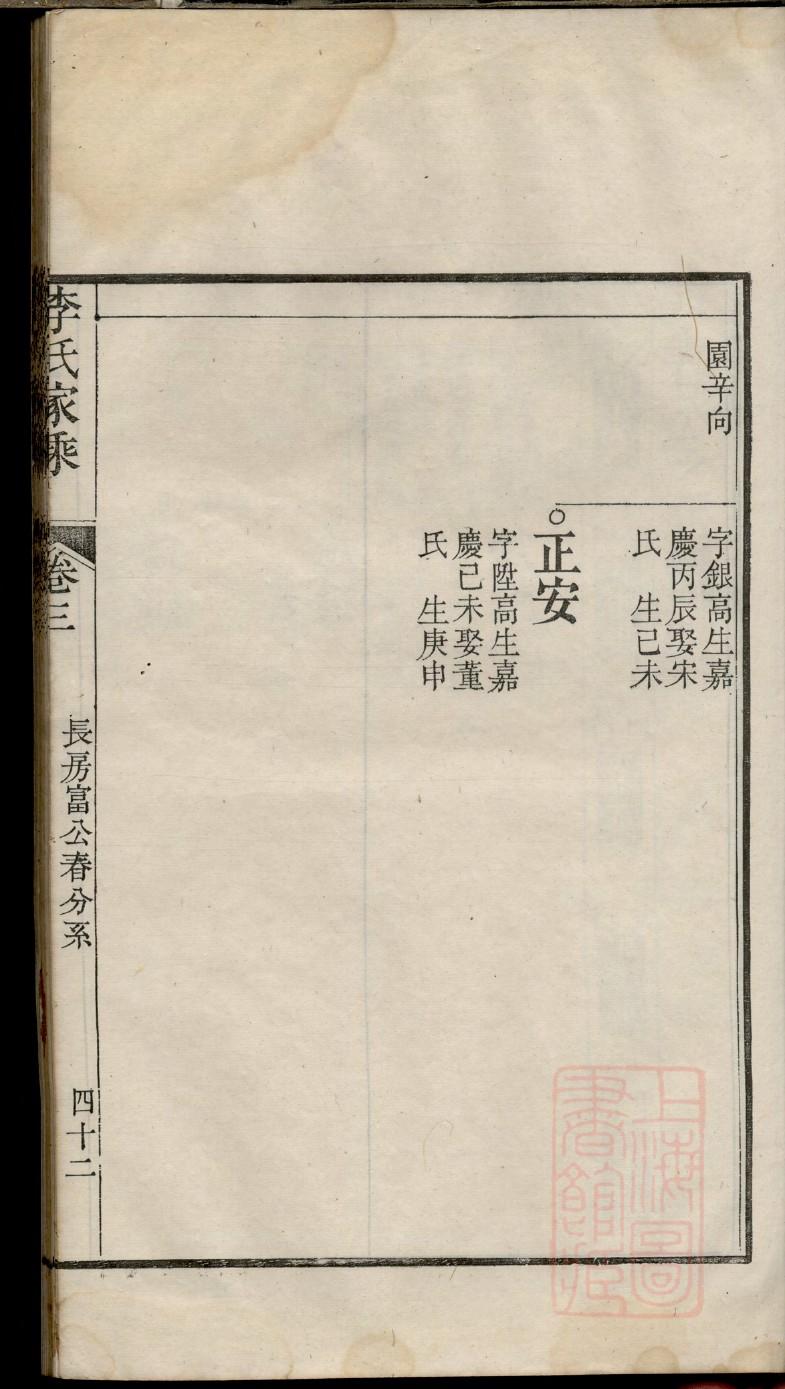 園辛向
字銀高生嘉
慶丙辰娶宋
氏　生己未
正安
字陞高生嘉
慶己未娶董
氏　生庚申
李氏家乘
卷三
長房富公春分系
四十二
上海圖
書館藏